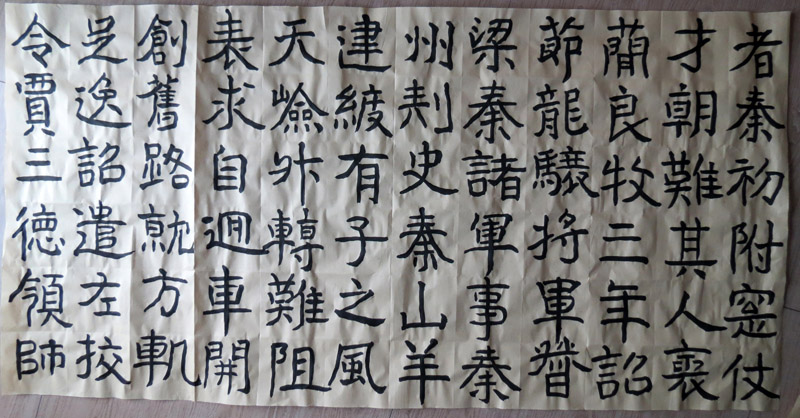 者秦初附寔仗
才朝難其人褒
蕳良牧三年詔
節龍驤將軍督
梁秦諸軍事秦
州刾史秦山羊
建綏有子之風
天嶮升轉難阻
表求自迴車開
創舊路就方軌
之逸詔遣左校
令賈三德領師